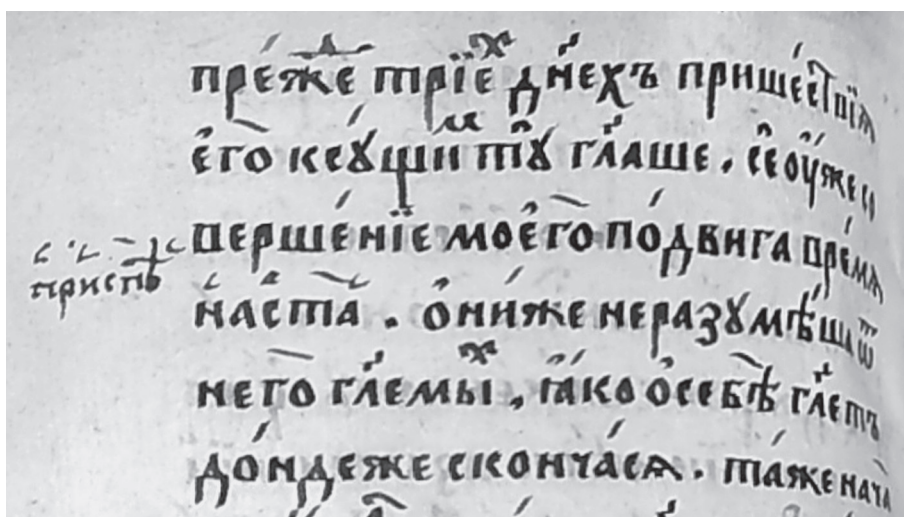 преⷣже трїеⷯ дн҃ехъ прише́ствїѧ
его̀ к сꙋ́щиⷨ тꙋ̀ гл҃аше . се ᲂуже со
верше́нїе моего̀ по́двига вре́мѧ
приспѣ̀
наста̀ . ѻни́же не разꙋмѣ́ша ѿ
него̀ гл҃емыⷯ , ꙗко ѻ себѣ̀ гл҃етъ
до́ндеже сконча́сѧ . та́же нача̀